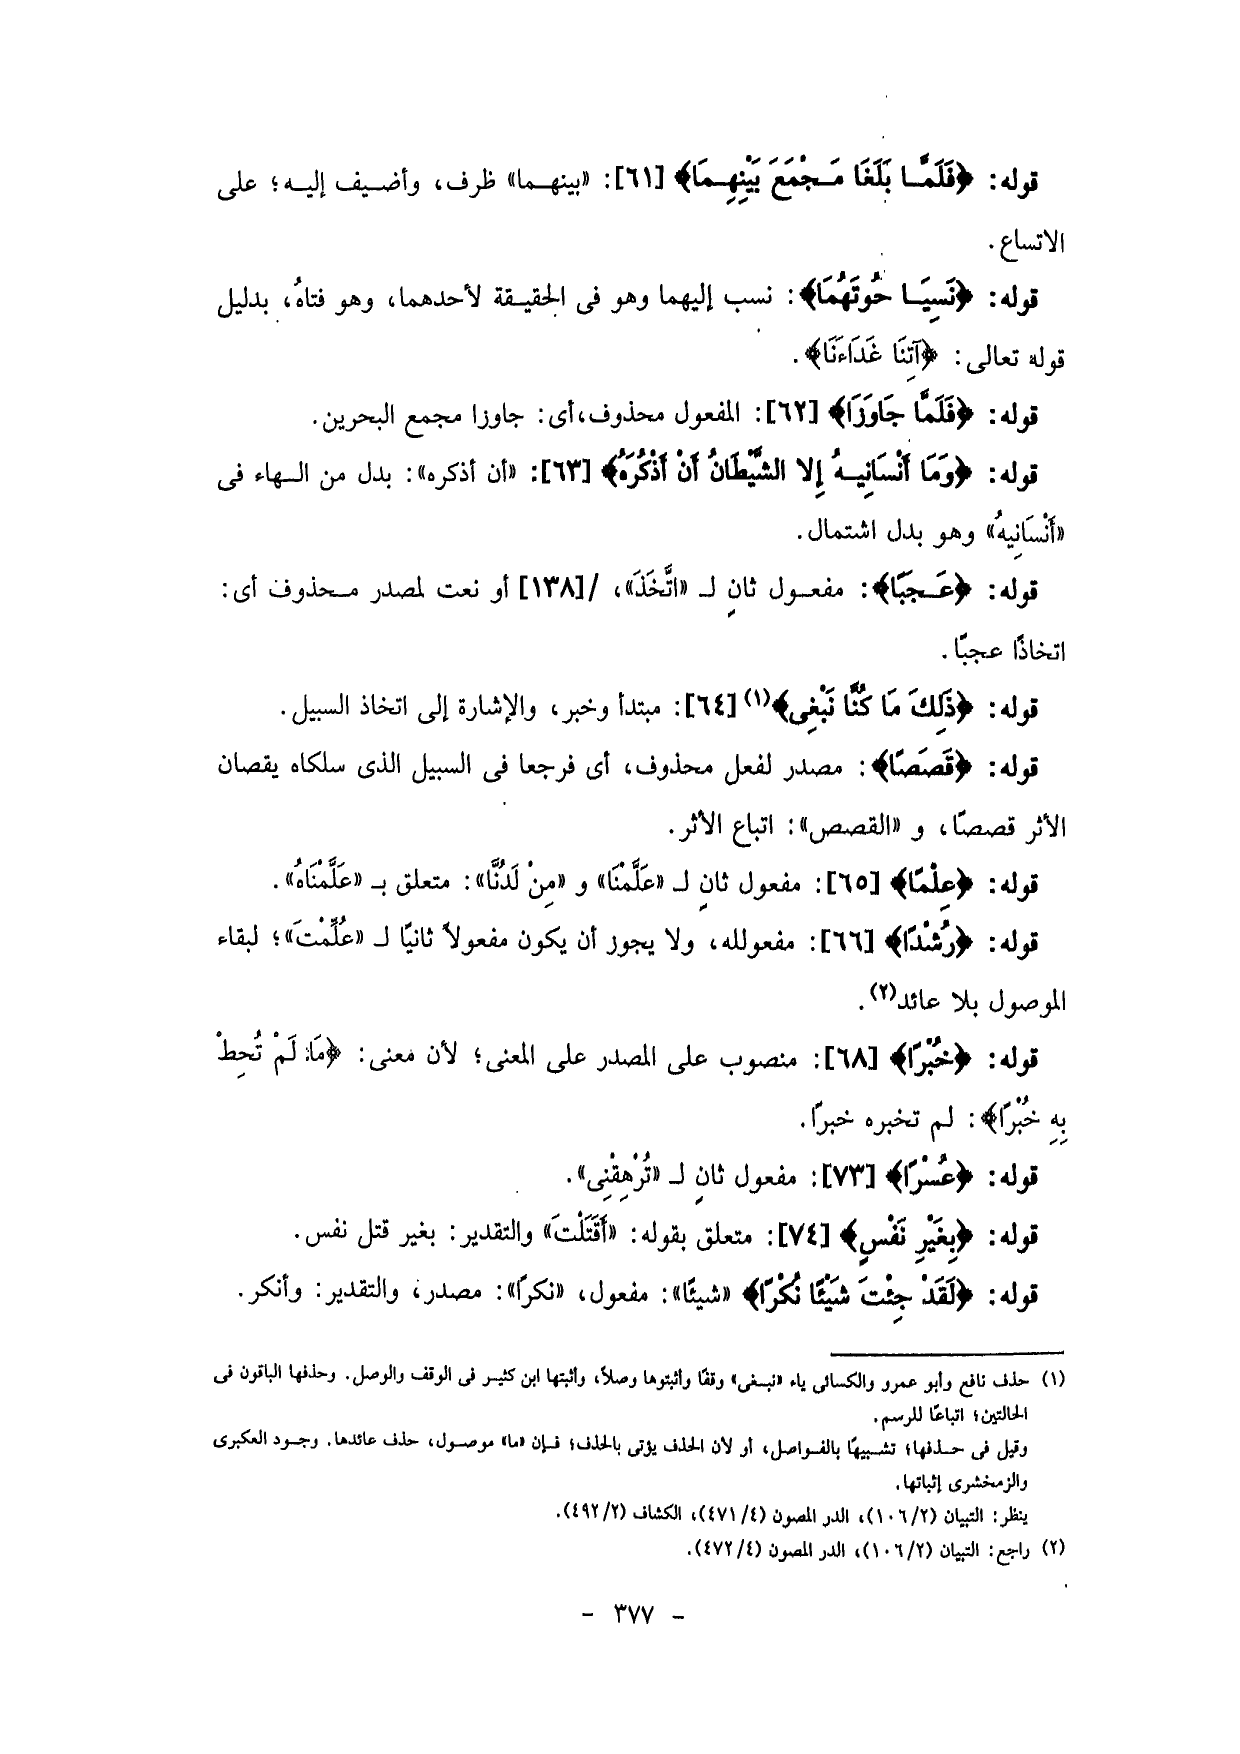 قوله: ﴿فَلَمَّا بَلَغَا مَجْمَعَ بَيْنِهِمَا﴾ [٦١]: «بينهما» ظرف، وأضيف إليه؛ على
الاتساع.
قوله: ﴿نَسِيَا حُوتَهُمَا﴾: نسب إليهما وهو فى الحقيقة لأحدهما، وهو فتاهُ، بدليل
قوله تعالى: ﴿آتِنَا غَدَاءَنَا﴾.
قوله: ﴿فَلَمَّا جَاوَزَا﴾ [٦٢]: المفعول محذوف،أى: جاوزا مجمع البحرين.
قوله: ﴿وَمَا أَنْسَانِيهُ إِلا الشَّيْطَانُ أَنْ أَذْكُرَهُ﴾ [٦٣]: «أن أذكره»: بدل من الهاء فى
«أَنْسَانِيهُ» وهو بدل اشتمال.
قوله: ﴿عَجَبًا﴾: مفعول ثانٍ لـ «اتَّخَذَ»، /[١٣٨] أو نعت لمصدر محذوف أى:
اتخاذًا عجبًا.
قوله: ﴿ذَلِكَ مَا كُنَّا نَبْغِى﴾(١) [٦٤]: مبتدأ وخبر، والإشارة إلى اتخاذ السبيل.
قوله: ﴿قَصَصًا﴾: مصدر لفعل محذوف، أى فرجعا فى السبيل الذى سلكاه يقصان
الأثر قصصًا، و «القصص»: اتباع الأثر.
قوله: ﴿عِلْمًا﴾ [٦٥]: مفعول ثانٍ لـ «عَلَّمْنَا» و «مِنْ لَدُنَّا»: متعلق بـ «عَلَّمْنَاهُ».
قوله: ﴿رُشْدًا﴾ [٦٦]: مفعولله، ولا يجوز أن يكون مفعولاً ثانيًا لـ «عُلِّمْتَ»؛ لبقاء
الموصول بلا عائد(٢).
قوله: ﴿خُبْرًا﴾ [٦٨]: منصوب على المصدر على المعنى؛ لأن معنى: ﴿مَا لَمْ تُحِطْ
بِهِ خُبْرًا﴾: لم تخبره خبرًا.
قوله: ﴿عُسْرًا﴾ [٧٣]: مفعول ثانٍ لـ «تُرْهِقْنِى».
قوله: ﴿بِغَيْرِ نَفْسٍ﴾ [٧٤]: متعلق بقوله: «أَقَتَلْتَ» والتقدير: بغير قتل نفس.
قوله: ﴿لَقَدْ جِئْتَ شَيْئًا نُكْرًا﴾ «شيئًا»: مفعول، «نكرًا»: مصدر، والتقدير: وأنكر.
(١) حذف نافع وأبو عمرو والكسائى ياء «نبغى» وقفًا وأثبتوها وصلاً، وأثبتها ابن كثير فى الوقف والوصل. وحذفها الباقون فى
الحالتين؛ اتباعًا للرسم.
وقيل فى حذفها؛ تشبيهًا بالفواصل، أو لأن الحذف يؤتى بالحذف؛ فإن «ما» موصول، حذف عائدها. وجود العكبرى
والزمخشرى إثباتها.
ينظر: التبيان (١٠٦/٢)، الدر المصون (٤٧١/٤)، الكشاف (٤٩٢/٢).
(٢) راجع: التبيان (١٠٦/٢)، الدر المصون (٤٧٢/٤).
- ٣٧٧ -